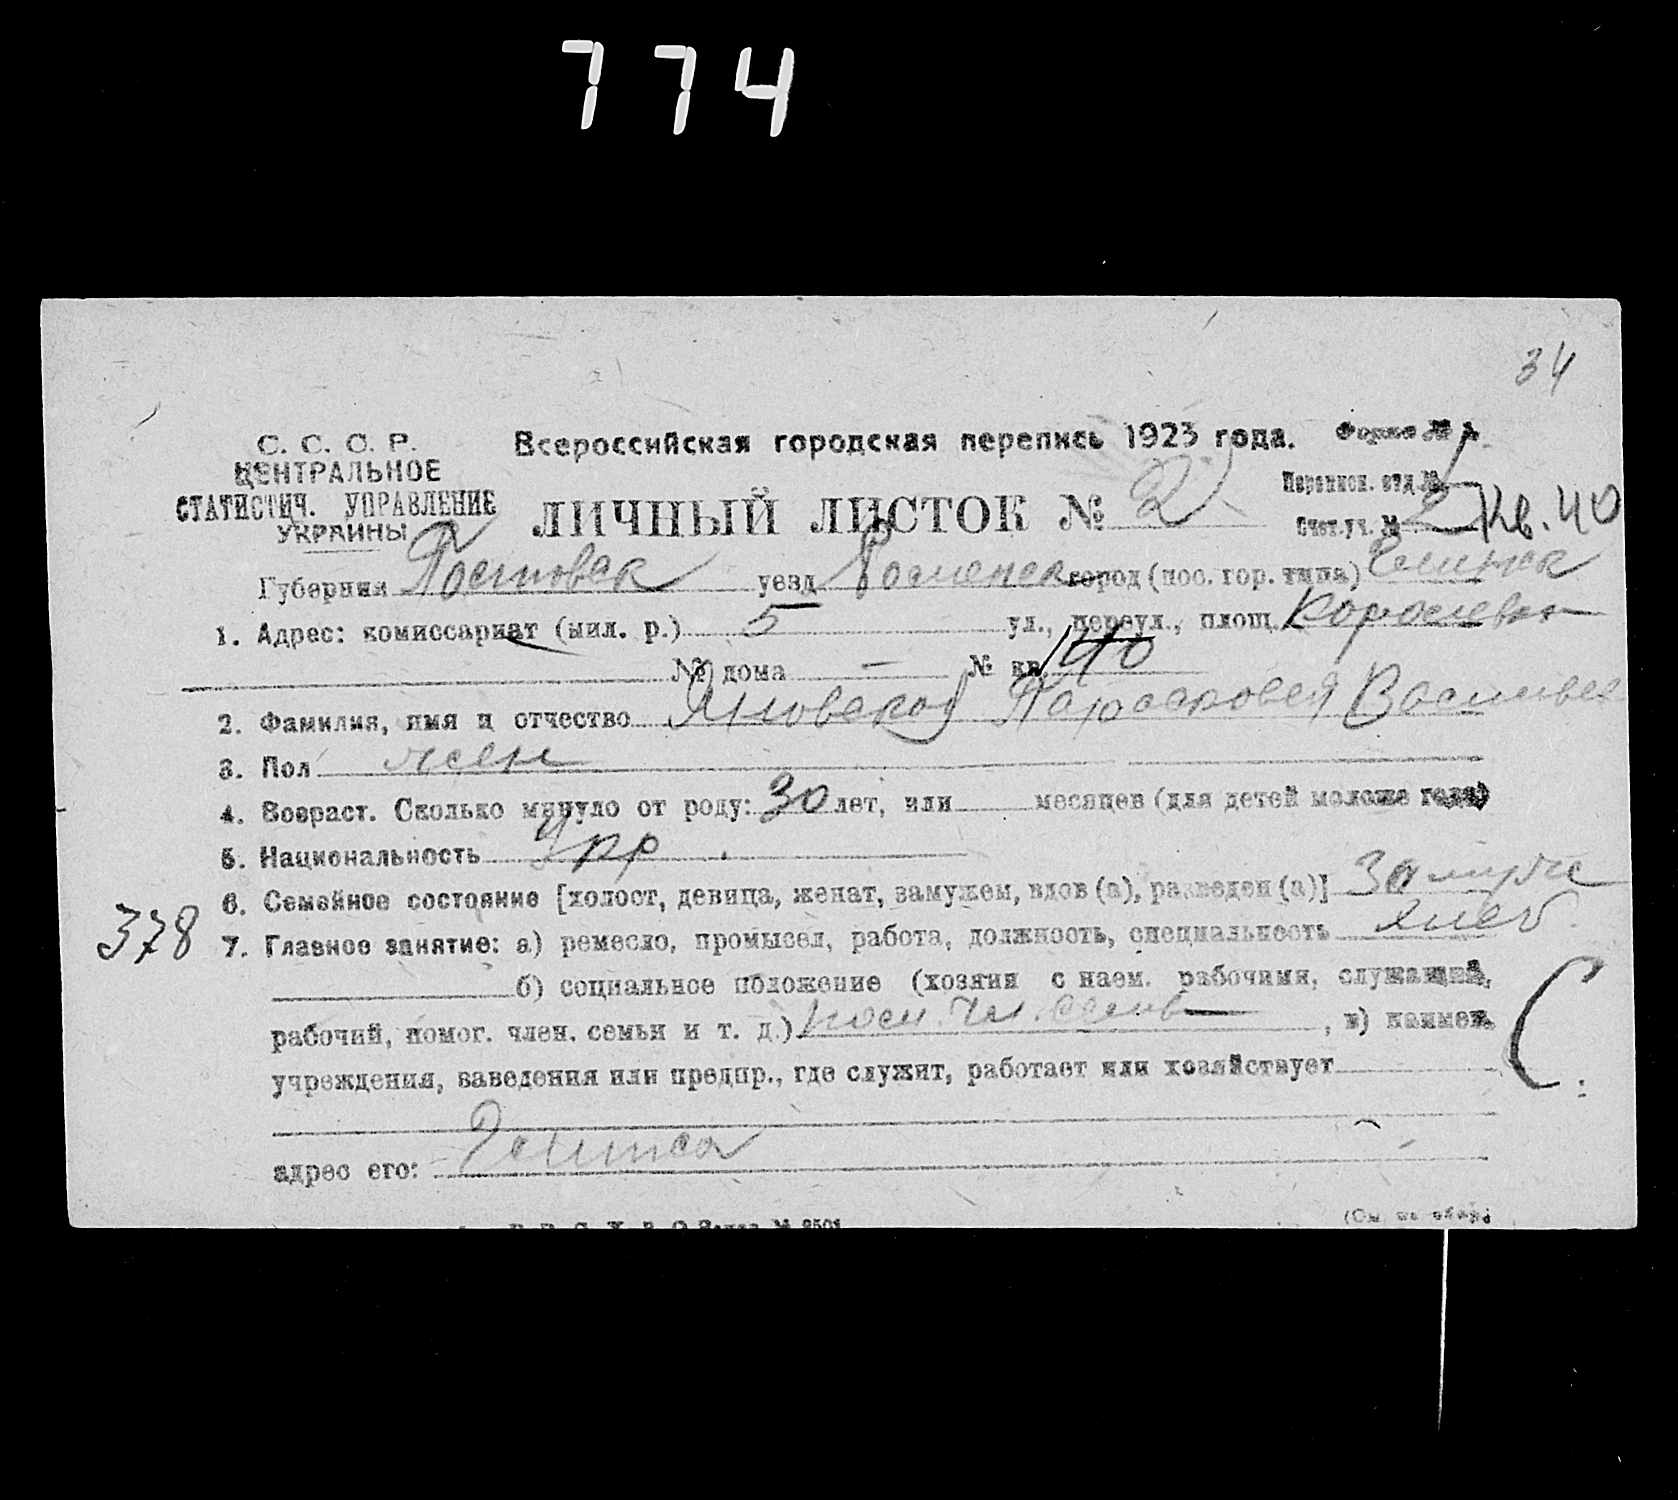 774
34
С. С. С. Р.
ЦЕНТРАЛЬНОЕ
СТАТИСТИЧ. УПРАВЛЕНИЕ
УКРАИНЫ
Всероссийская городская перепись 1923 года.
Форма №
ЛИЧНЫЙ ЛИСТОК № 2
Переписн. отд. №
Счет. уч. № 2 Кв. 40
Губерния уезд город (пос. гор. типа)
1. Адрес: комиссариат (мил. р.) 5 ул., переул., площ.
№ дома — № кв. 40
2. Фамилия, имя и отчество Яновская Парасковея
3. Пол жен
4. Возраст. Сколько минуло от роду: 30 лет, или месяцев (для детей моложе года)
5. Национальность Укр
6. Семейное состояние [холост, девица, женат, замужем, вдов (а), разведен (а)] Замуже
378
7. Главное занятие: а) ремесло, промысел, работа, должность, специальность хлеб
б) социальное положение (хозяин с наем. рабочими, служащий,
рабочий, помог. член. семьи и т. д.) , в) наимен.
учреждения, заведения или предпр., где служит, работает или хозяйствует
адрес его:
(См. на обор.)